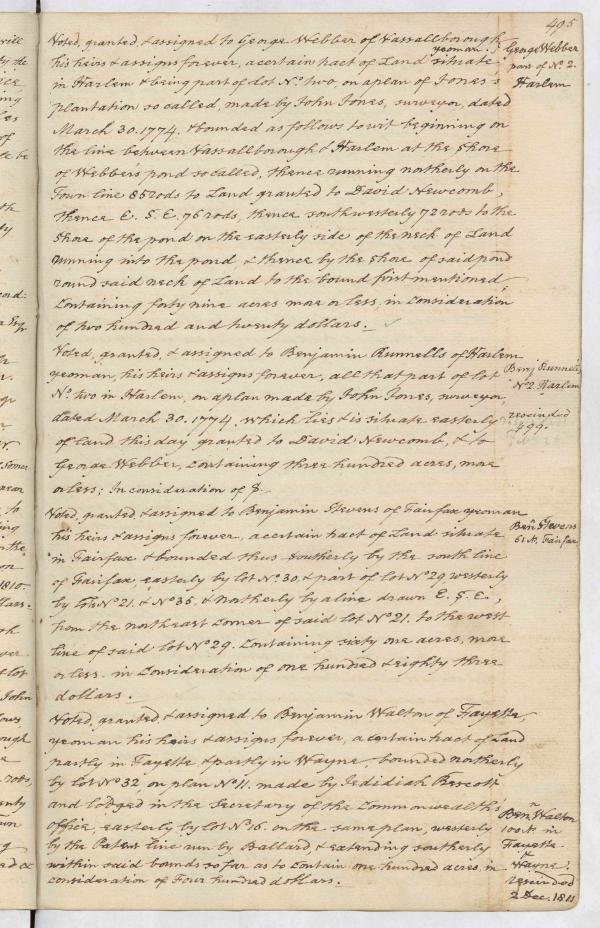 495
Voted, granted, & assigned to George Webber of Vassallborough
yeoman
his heirs & assigns forever, a certain tract of Land situate
in Harlem & being part of lot No. two, on a plan of Jones's
plantation so called, made by John Jones, surveyor, dated
March 30. 1774. & bounded as follows to wit beginning on
the line between Vassallborough & Harlem at the shore
of Webber's pond so called, thence running northerly on the
Town line 85 rods to Land granted to David Newcomb,
thence E. S. E. 76 rods, thence southwesterly 72 rods to the
shore of the pond on the easterly side of the neck of Land
running into the pond & thence by the shore of said pond
round said neck of Land to the bound first mentioned
Containing forty nine acres more or less in consideration
of two hundred and twenty dollars.
George Webber
part of No. 2.
Harlem
Voted, granted, & assigned to Benjamin Runnells of Harlem
yeoman, his heirs & assigns forever, all that part of lot
No. two in Harlem, on a plan made by John Jones, surveyor,
dated March 30. 1774. which lies & is situate easterly
of land this day granted to David Newcomb, & to
George Webber, Containing three hundred acres, more
or less; In consideration of $.
Benj Runnells
No. 2 Harlem
rescinded
499.
Voted, granted, & assigned to Benjamin Stevens of Fairfax yeoman
his heirs & assigns forever, a certain tract of Land situate
in Fairfax & bounded thus southerly by the south line
of Fairfax, easterly by lot No. 30, & part of lot No. 29, westerly
by lots No. 21. & No. 35, & northerly by a line drawn E. S. E.,
from the northeast Corner of said lot No. 21. to the west
line of said lot No. 29. Containing sixty one acres, more
or less. in Consideration of one hundred & eighty three
dollars.
Benn. Stevens
61 A. Fairfax
Voted, granted, & assigned to Benjamin Walton of Fayette,
yeoman his heirs & assigns forever, a certain tract of Land
partly in Fayette & partly in Wayne, bounded northerly
by lot No 32 on plan No. 11. made by Jedidiah Prescott
and lodged in the Secretary of the Commonwealth's
office, easterly by lot No. 16. on the same plan, westerly
by the Patent line run by Ballard & extending southerly
within said bounds so far as to contain one hundred acres, in
consideration of Four hundred dollars.
Benn. Walton
100 A. in
Fayette
&
Wayne.
rescinded
2 Dec. 1811